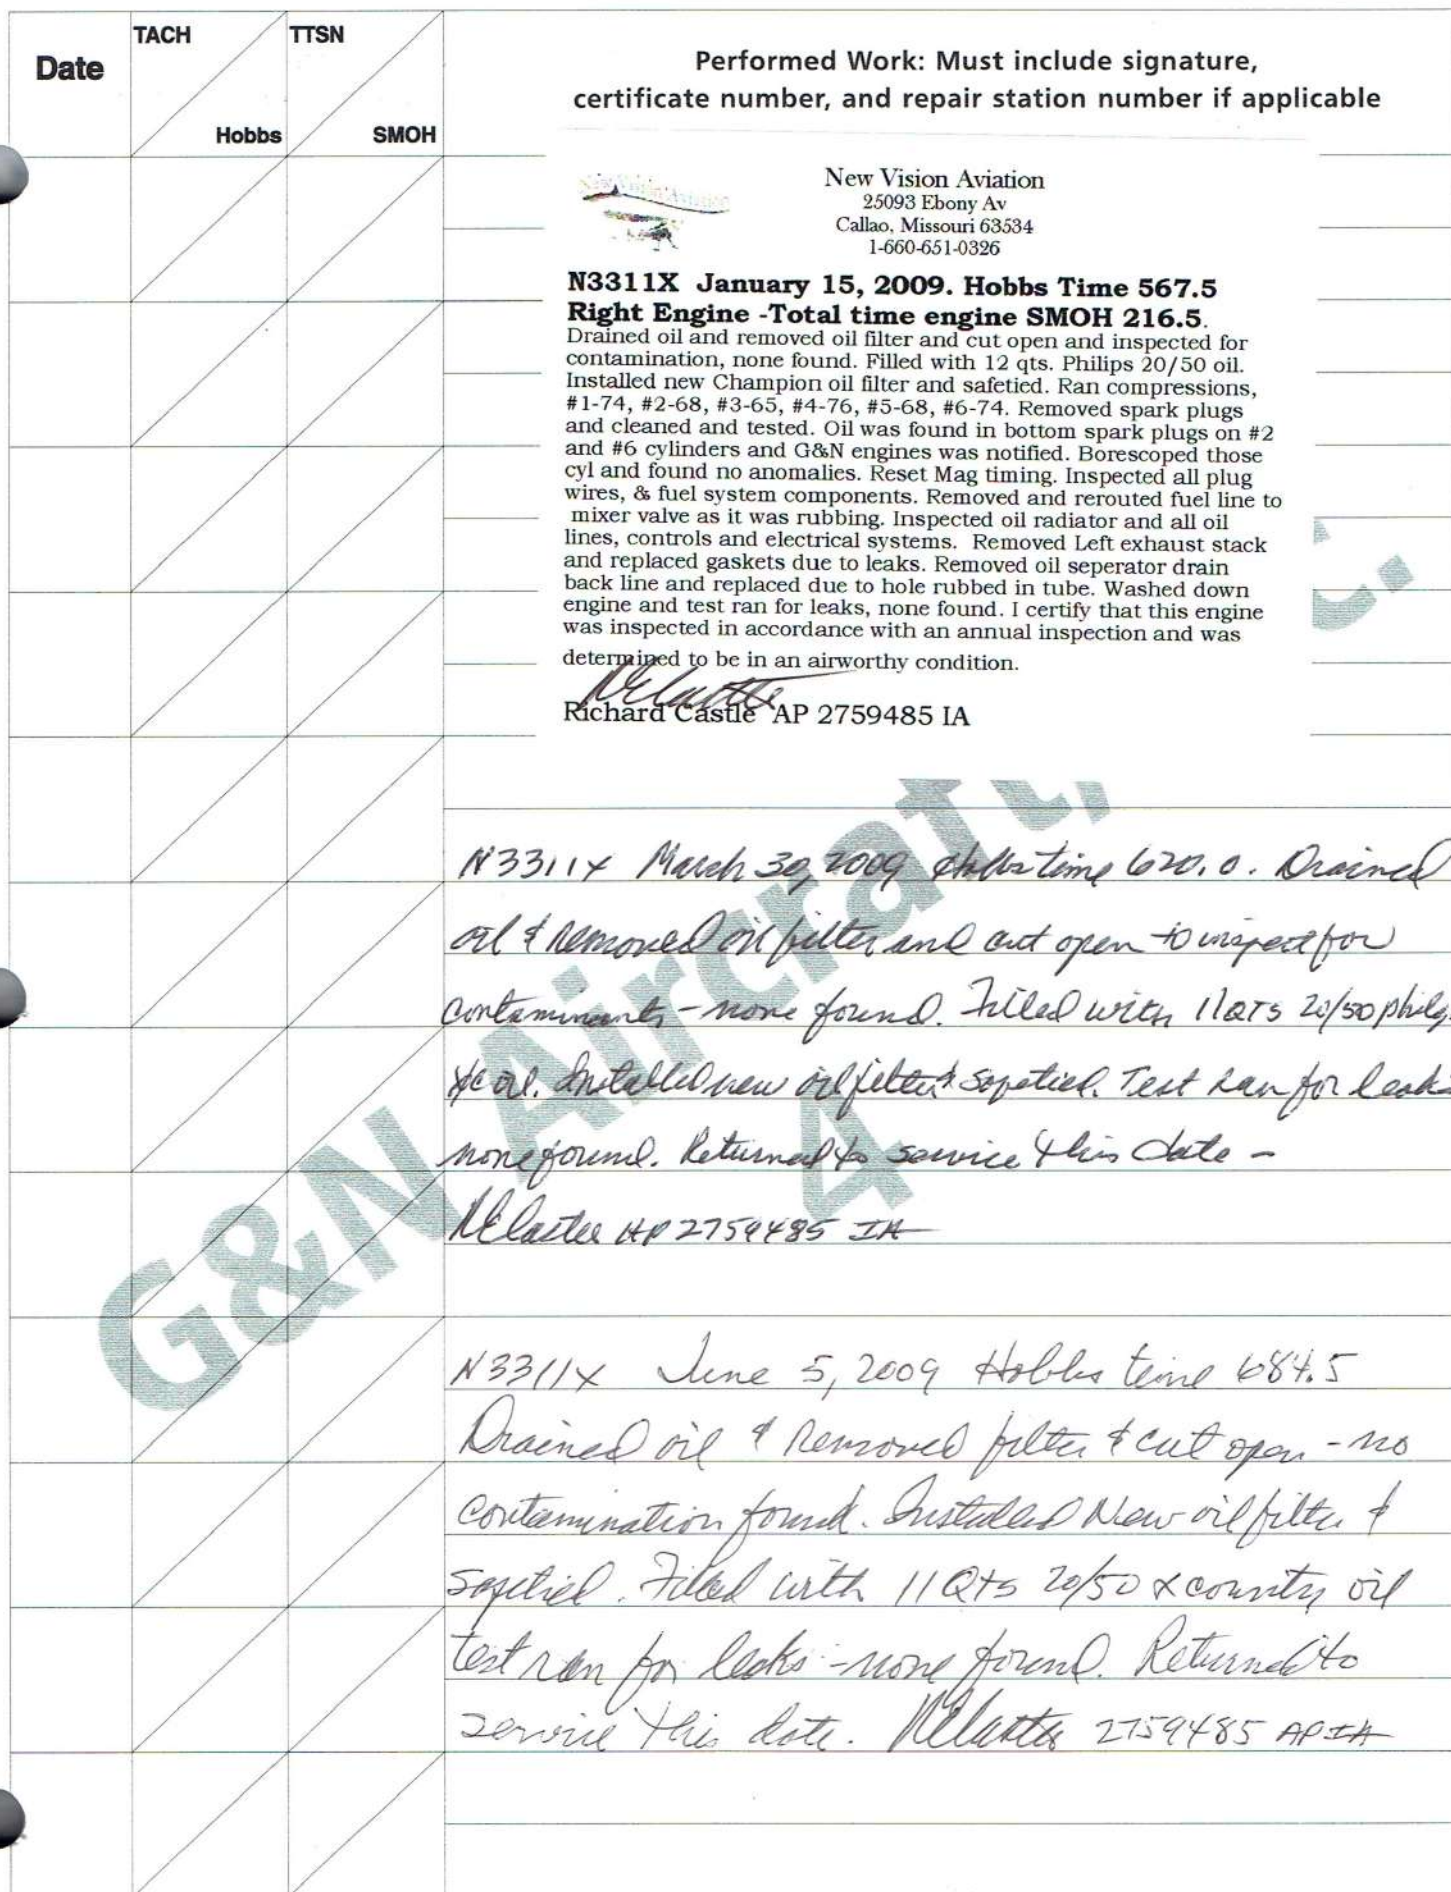 TACH
TTSN
Date
Hobbs
SMOH
Performed Work: Must include signature,
certificate number, and repair station number if applicable
New Vision Aviation
New Vision Aviation
25093 Ebony Av
Callao, Missouri 63534
1-660-651-0326
N3311X January 15, 2009. Hobbs Time 567.5
Right Engine -Total time engine SMOH 216.5.
Drained oil and removed oil filter and cut open and inspected for
contamination, none found. Filled with 12 qts. Philips 20/50 oil.
Installed new Champion oil filter and safetied. Ran compressions,
#1-74, #2-68, #3-65, #4-76, #5-68, #6-74. Removed spark plugs
and cleaned and tested. Oil was found in bottom spark plugs on #2
and #6 cylinders and G&N engines was notified. Borescoped those
cyl and found no anomalies. Reset Mag timing. Inspected all plug
wires, & fuel system components. Removed and rerouted fuel line to
mixer valve as it was rubbing. Inspected oil radiator and all oil
lines, controls and electrical systems. Removed Left exhaust stack
and replaced gaskets due to leaks. Removed oil seperator drain
back line and replaced due to hole rubbed in tube. Washed down
engine and test ran for leaks, none found. I certify that this engine
was inspected in accordance with an annual inspection and was
determined to be in an airworthy condition.
Richard Castle AP 2759485 IA
G&N Aircraft,
4
N3311X March 30, 2009 Hobbs time 620.0. Drained
oil & removed oil filter and cut open to inspect for
contaminants - none found. Filled with 11 QTS 20/50 philips
XC oil. Installed new oil filter & safetied. Test ran for leaks
none found. Returned to service this date -
RCastle AP 2759485 IA
N3311X June 5, 2009 Hobbs time 684.5
Drained oil & removed filter & cut open - no
contamination found. Installed New oil filter &
safetied. Filled with 11 Qts 20/50 x country oil
test ran for leaks - none found. Returned to
service this date. RCastle 2759485 AP IA